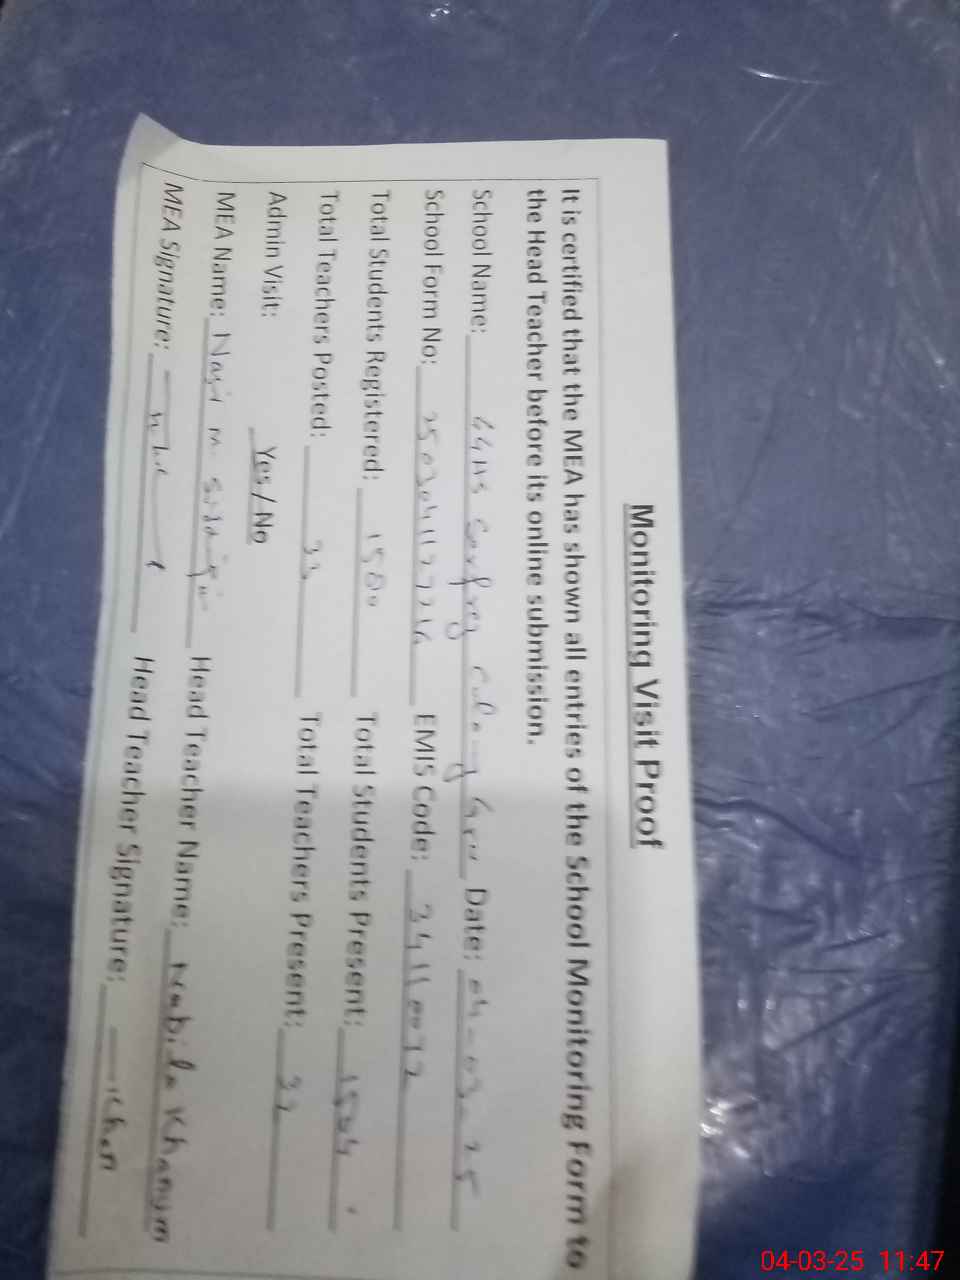 Monitoring Visit Proof
It is certified that the MEA has shown all entries of the School Monitoring Form to
the Head Teacher before its online submission.
School Name: Colony Date: 04-03-25
School Form No: EMIS Code:
Total Students Registered: Total Students Present:
Total Teachers Posted: Total Teachers Present: 32
Admin Visit: Yes/No
MEA Name: Nasir M. Head Teacher Name: Nabila Khanum
MEA Signature: Head Teacher Signature: Khan
04-03-25 11:47